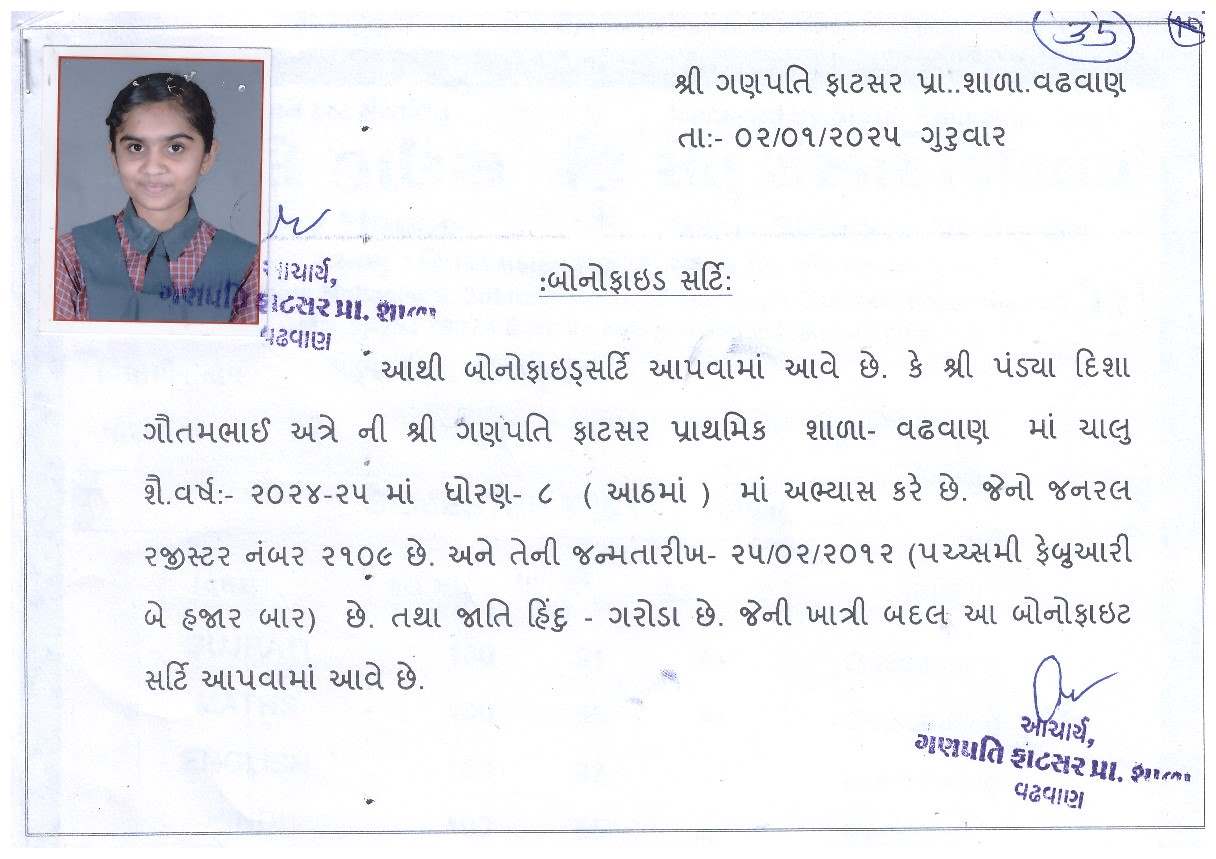 35
શ્રી ગણપતિ ફાટસર પ્રા..શાળા.વઢવાણ
તા:- ૦૨/૦૧/૨૦૨૫ ગુરુવાર
આચાર્ય,
ગણપતિ ફાટસર પ્રા. શાળા
વઢવાણ
:બોનોફાઇડ સર્ટિ:
આથી બોનોફાઇડ્સર્ટિ આપવામાં આવે છે. કે શ્રી પંડ્યા દિશા
ગૌતમભાઈ અત્રે ની શ્રી ગણપતિ ફાટસર પ્રાથમિક શાળા- વઢવાણ માં ચાલુ
શૈ.વર્ષ:- ૨૦૨૪-૨૫ માં ધોરણ- ૮ ( આઠમાં ) માં અભ્યાસ કરે છે. જેનો જનરલ
રજીસ્ટર નંબર ૨૧૦૯ છે. અને તેની જન્મતારીખ- ૨૫/૦૨/૨૦૧૨ (પચ્ચ્સમી ફેબ્રુઆરી
બે હજાર બાર) છે. તથા જાતિ હિંદુ - ગરોડા છે. જેની ખાત્રી બદલ આ બોનોફાઇટ
સર્ટિ આપવામાં આવે છે.
આચાર્ય,
ગણપતિ ફાટસર પ્રા. શાળા
વઢવાણ